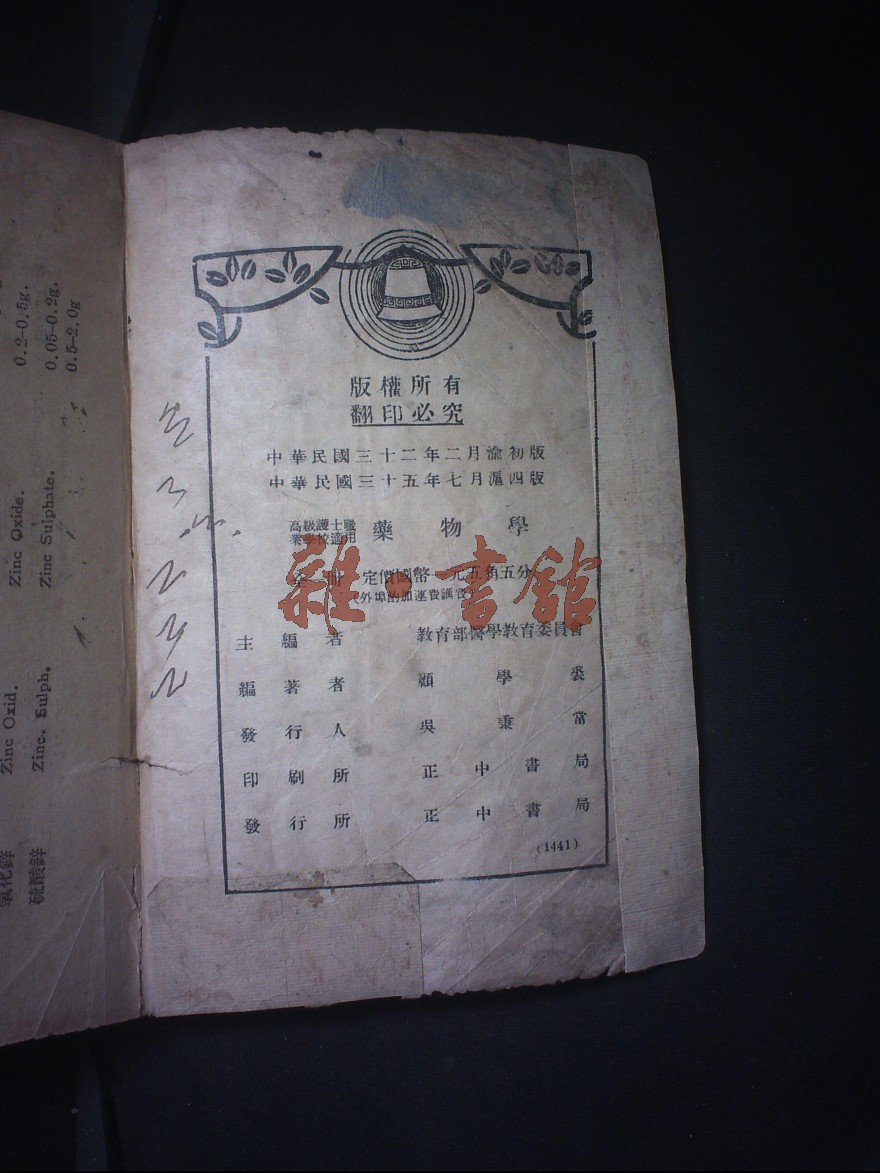 版權所有
翻印必究
中華民國三十二年二月渝初版
中華民國三十五年七月滬四版
高級護士職業學校適用 藥物學
全一冊 定價國幣一元五角五分
(外埠酌加運費滙費)
主編者 教育部醫學教育委員會
編著者 顧學裘
發行人 吳秉常
印刷所 正中書局
發行所 正中書局
(1441)
雜·書館
氧化鋅 Zinc Oxid. Zinc Oxide. 0.2-0.5g.
硫酸鋅 Zinc. Sulph. Zinc Sulphate. 0.05-0.2g.
0.5-2.0g